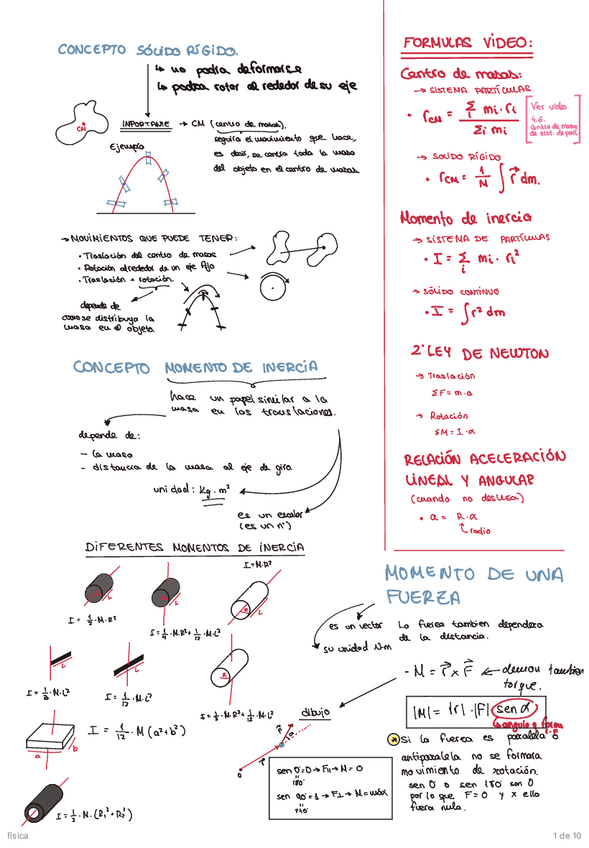 CONCEPTO SÓLIDO RÍGIDO.
↳ no podra deformarse
↳ podra rotar alrededor de su eje
CM
IMPORTANTE → CM (centro de masas),
seguira el movimiento que hace,
es decir, se centra toda la masa
del objeto en el centro de masas.
Ejemplo
→ MOVIMIENTOS QUE PUEDE TENER:
• Traslación del centro de masas
• Rotación alrededor de un eje fijo
• Traslación + rotación.
depende de
como se distribuya la
masa en el objeto.
CONCEPTO MOMENTO DE INERCIA
hace un papel similar a la
masa en las translaciones.
depende de:
- la masa
- distancia de la masa al eje de giro
unidad: Kg·m²
es un escalar
(es un nº)
DIFERENTES MOMENTOS DE INERCIA
I = M·R²
I = 1/2·M·R²
I = 1/4·M·R² + 1/12·M·L²
I = 1/3·M·L²
I = 1/12·M·L²
I = 1/2·M·R² + 1/12·M·L²
I = 1/12·M(a²+b²)
a
b
I = 1/2·M·(R₁²+R₂²)
FORMULAS VIDEO:
Centro de masas:
→ SISTEMA PARTÍCULAS
• r_CM = Σ mi·ri / Σi mi
i
Ver video
4.6.
Centro de masas
de sist. de part.
→ SOLIDO RÍGIDO
• r_CM = 1/M ∫ r⃗ dm.
Momento de inercia
→ SISTEMA DE PARTÍCULAS
• I = Σ mi·ri²
i
→ SÓLIDO CONTINUO
• I = ∫ r² dm
2ª LEY DE NEWTON
→ Traslación
ΣF = m·a
→ Rotación
ΣM = I·α
RELACIÓN ACELERACIÓN
LINEAL Y ANGULAR
(cuando no desliza)
• a = R·α
radio
MOMENTO DE UNA
FUERZA
es un vector
La fuerza tambien dependera
de la distancia.
su unidad N·m
- M = r⃗ x F⃗ ← llamau tambien
torque.
|M| = |r|·|F| sen α
↳ angulo q forma
r·F
dibujo
sen 0 = 0 → F∥ → M = 0
180°
sen 90° = 1 → F⊥ → M = máx
* Si la fuerza es paralela o
antiparalela no se formara
movimiento de rotación.
sen 0 o sen 180 son 0
por lo que F = 0 y x ello
fuera nula.
fisica
1 de 10